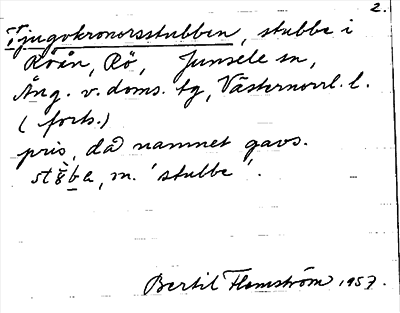 2.
Tjugokronorsstubben, stubbe i
Röån, Rö, Junsele sn,
Ång. v. doms. tg, Västernorrl. l.
(forts.)
pris, då namnet gavs.
m. 'stubbe'.
Bertil Flemström 1957.